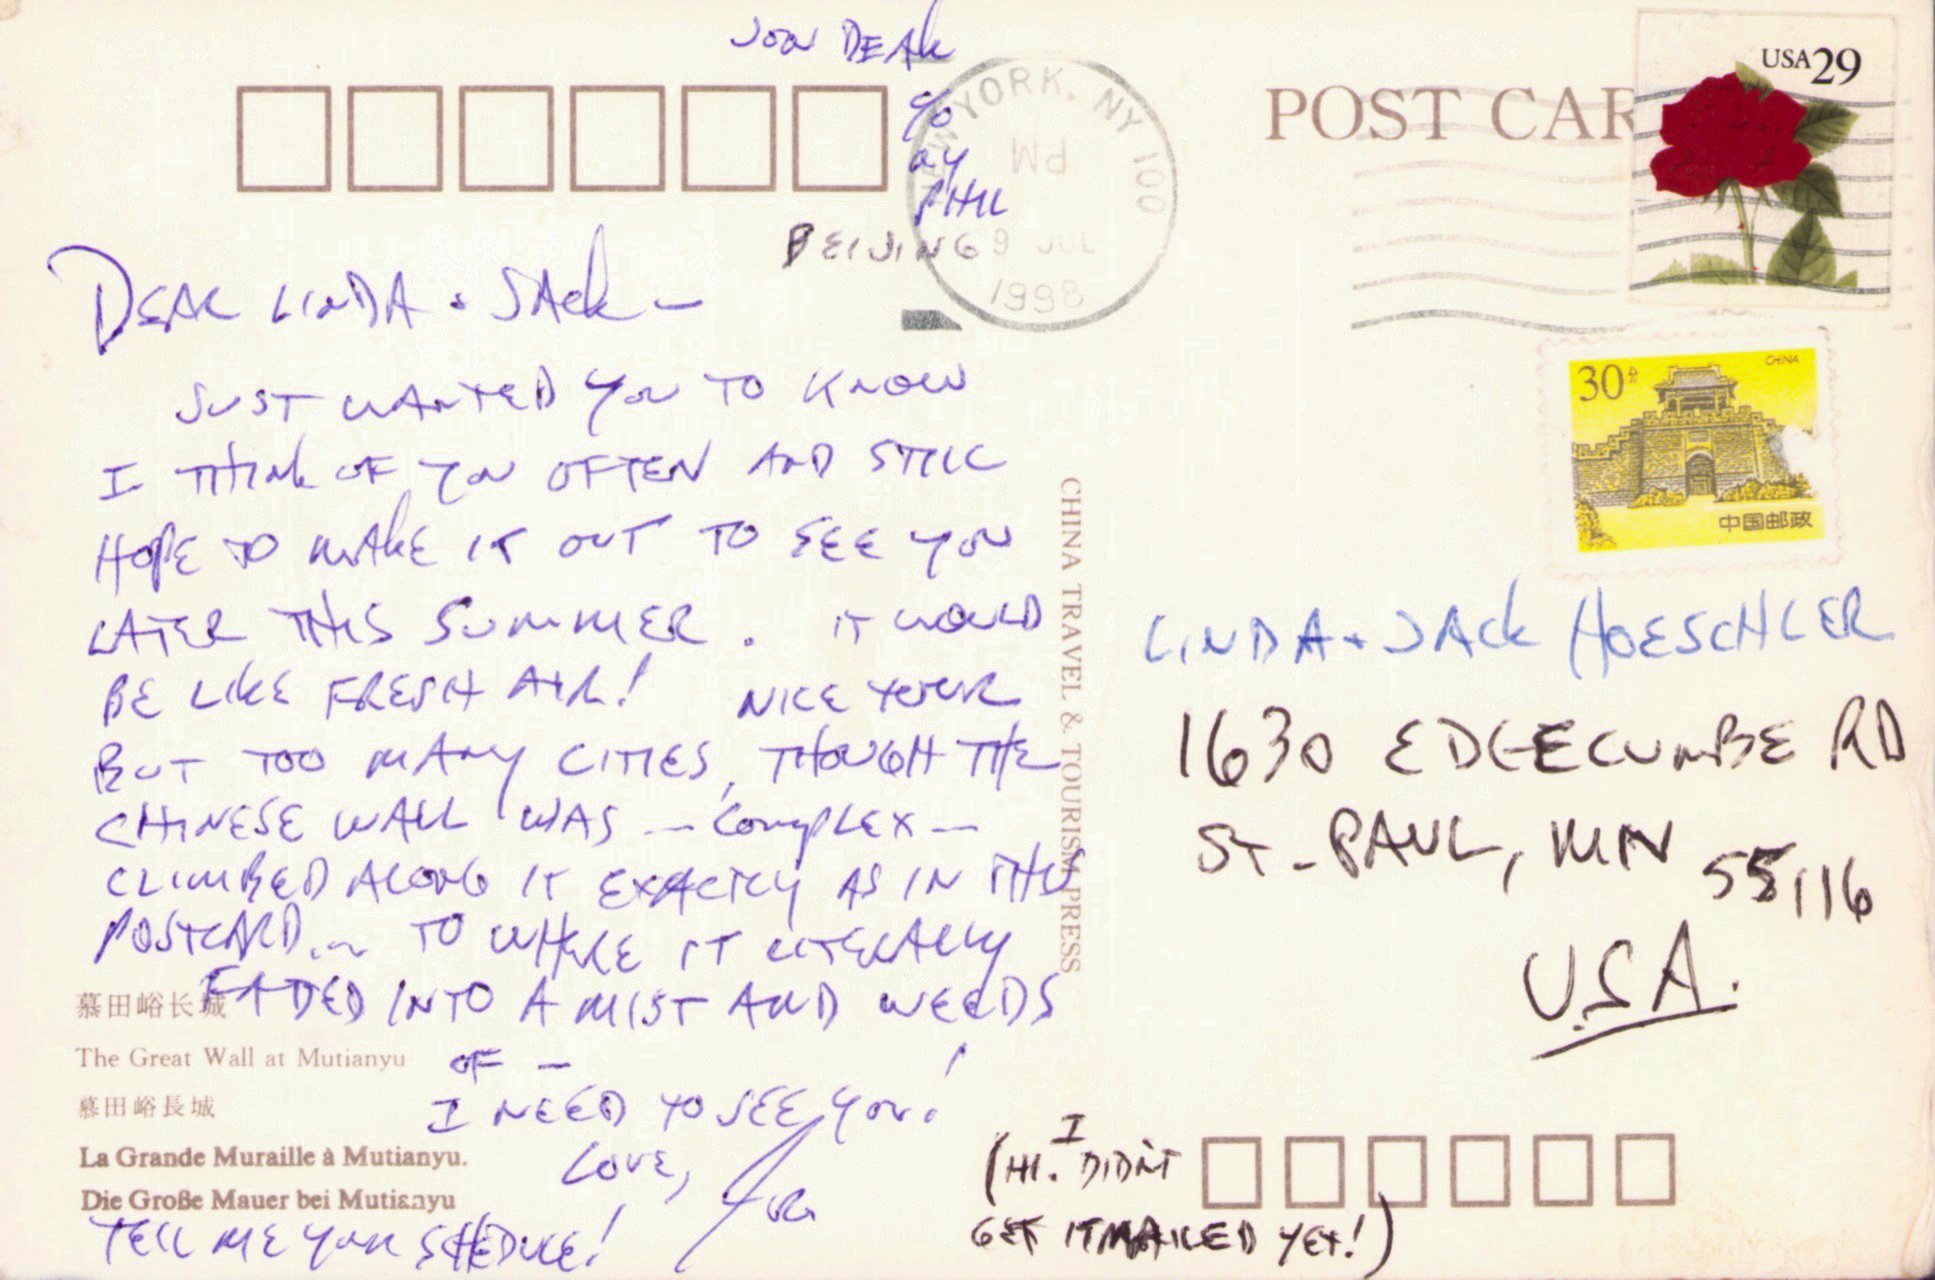 JON DEAK
c/o
NY
PHIL
BEIJING
NEW YORK, NY 100
PM
9 JUL
1998
POST CAR
USA 29
CHINA
30分
中国邮政
DEAR LINDA + JACK —
JUST WANTED YOU TO KNOW
I THINK OF YOU OFTEN AND STILL
HOPE TO MAKE IT OUT TO SEE YOU
LATER THIS SUMMER. IT WOULD
BE LIKE FRESH AIR! NICE TOUR
BUT TOO MANY CITIES, THOUGH THE
CHINESE WALL WAS — COMPLEX —
CLIMBED ALONG IT EXACTLY AS IN THIS
POSTCARD... TO WHERE IT LITERALLY
FADED INTO A MIST AND WEEDS
OF —
I NEED TO SEE YOU!
LOVE,
TELL ME YOUR SCHEDULE!
慕田峪长城
The Great Wall at Mutianyu
慕田峪長城
La Grande Muraille à Mutianyu.
Die Große Mauer bei Mutianyu
CHINA TRAVEL & TOURISM PRESS
LINDA + JACK HOESCHLER
1630 EDGECUMBE RD
ST. PAUL, MN 55116
U.S.A.
(HI. I DIDN'T
GET IT MAILED YET!)